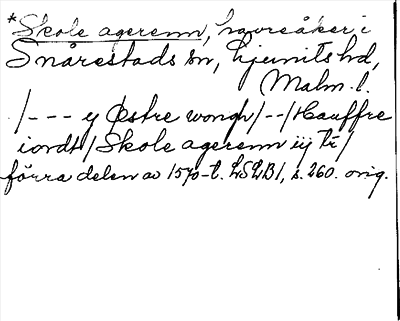 *Skole agerenn, havreåker i
Snårestads sn, Ljunits hd,
Malm. l.
/--- y Østre wongh/--/Hauffre
iordt/Skole agerenn iij tr/
förra delen av 1570-t. LSLB1, s. 260. orig.